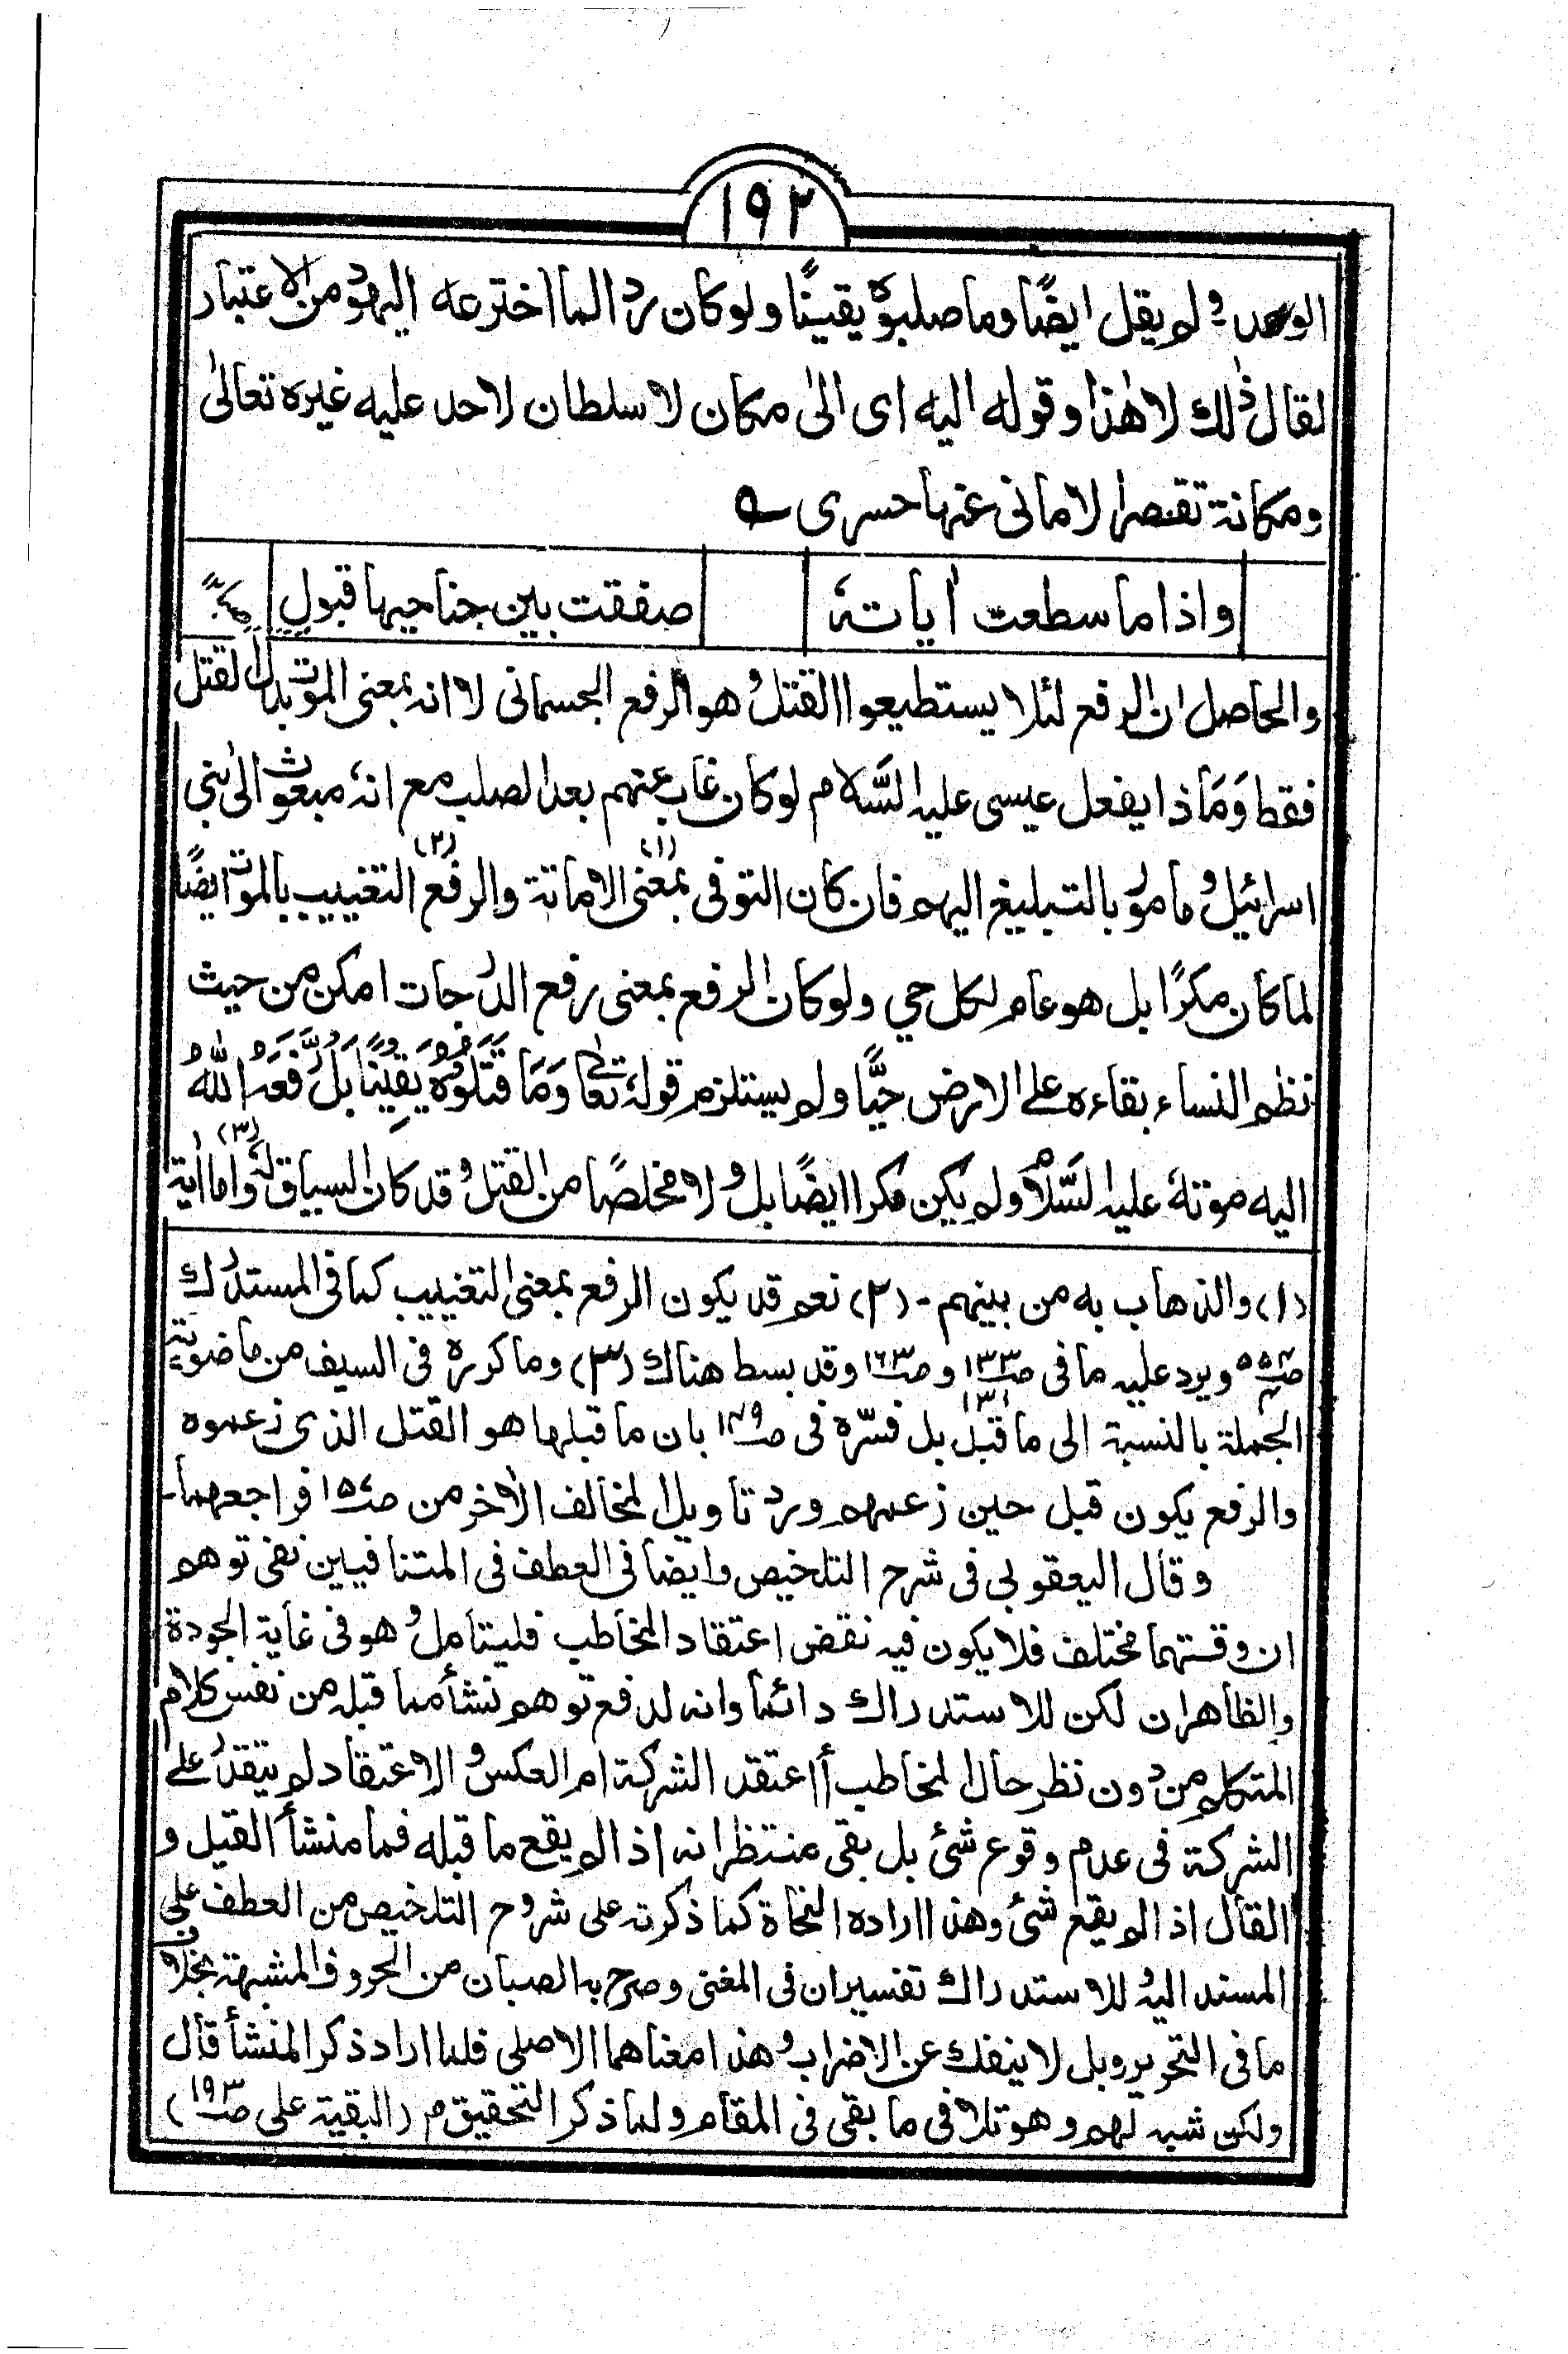 ١٩٢
ولم يقل ايضًا وما صلبوه يقينًا ولو كان ردا لما اخترعه اليهود من الاعتبار
لقال ذٰلك لا هٰذا وقوله اليه اى الىٰ مكان لا سلطان لاحد عليه غيره تعالىٰ
ومكانة تقصر الامانى عنها حسرى ؎
واذا ما سطعت اٰياتهٗ صفقت بين جناحيها قبول
والحاصل ان الرفع لئلا يستطيعوا القتل وهو الرفع الجسمانى لا انه بمعنى الموت بدل القتل
فقط وَمَاذا يفعل عيسى عليه السَّلام لو كان غاب عنهم بعد الصلب مع انهٗ مبعوث الىٰ بنى
اسرائيل ومامور بالتبليغ اليهم فان كان التوفى بمعنى (١) الاماتة والرفع (٢) التغييب بالموت ايضًا
لما كان مكرًا بل هو عام لكل حي ولو كان الرفع بمعنى رفع الدرجات امكن من حيث
نظم النساء بقاءه على الارض حيًّا ولم يستلزم قولهٗ تعالىٰ وَمَا قَتَلُوْهُ يَقِيْنًا بَلْ رَّفَعَهُ اللّٰهُ
اليه موتهٗ عليه السَّلام ولم يكن مكرا ايضًا بل ولا مخلصًا من القتل وقد كان السياق لهٗ (٣) واما اٰية
(١) والذهاب به من بينهم - (٢) نعم قد يكون الرفع بمعنى التغييب كما فى المستدرك
ويرد عليه ما فى صـ١٣٣ و صـ١٦٣ وقد بسط هناك (٣) وما كرره فى السيف من ماضوية
الجملة بالنسبة الى ما قبل بل فسّره فى بان ما قبلها هو القتل الذى زعموه
والرفع يكون قبل حين زعمهم ورد تاويل المخالف الاٰخر من فراجعهما-
وقال اليعقوبى فى شرح التلخيص وايضا فى العطف فى المتنافيين نفى توهم
ان وقتهما مختلف فلا يكون فيه نقض اعتقاد المخاطب فليتامل وهو فى غاية الجودة
والظاهر ان لكن للاستدراك دائما وانه لدفع توهم نشأ مما قبله من نفس كلام
المتكلم من دون نظر حال المخاطب أاعتقد الشركة ام العكس والاعتقاد لم يتقدر على
الشركة فى عدم وقوع شئ بل بقى منتظرا انه اذا لم يقع ما قبله فما منشأ القيل و
القال اذا لم يقع شئ وهذا اراده النحاة كما ذكرته على شروح التلخيص من العطف على
المسند اليه وللاستدراك تفسيران فى المغنى وصرح به الصبان من الحروف المشبهة بخلاف
ما فى التحرير وبل لا ينفك عن الاضراب وهذا معناهما الاصلى فلما اراد ذكر المنشأ قال
ولكن شبه لهم وهو تلافى ما بقى فى المقام ولما ذكر التحقيق م (البقية على صـ١٩٣)